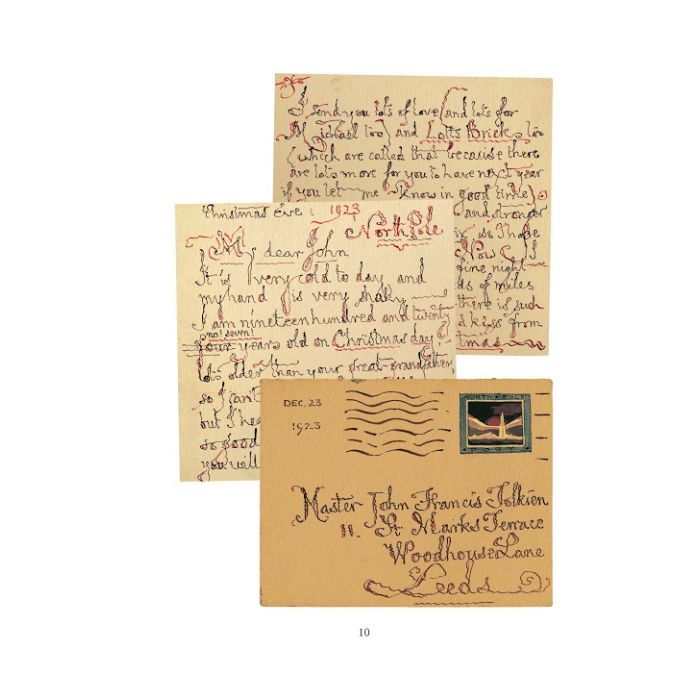 I send you lots of love (and lots for
Michael too) and Lotts Bricks too
(which are called that because there
are lots more for you to have next year
if you let me know in good time)
and stronger
hope
Now I
fine night
of miles
there is such
a kiss from
Christmas Eve : 1923
North Pole
My dear John
It is very cold to day and
my hand is very shaky
I am nineteenhundred and twenty
no! seven!
four years old on Christmas day,
lots older than your great-grandfather,
so I can't
but I
so good
you will
DEC. 23
1923
NORTH POLE
Master John Francis Tolkien
11. St Marks Terrace
Woodhouse Lane
Leeds
10